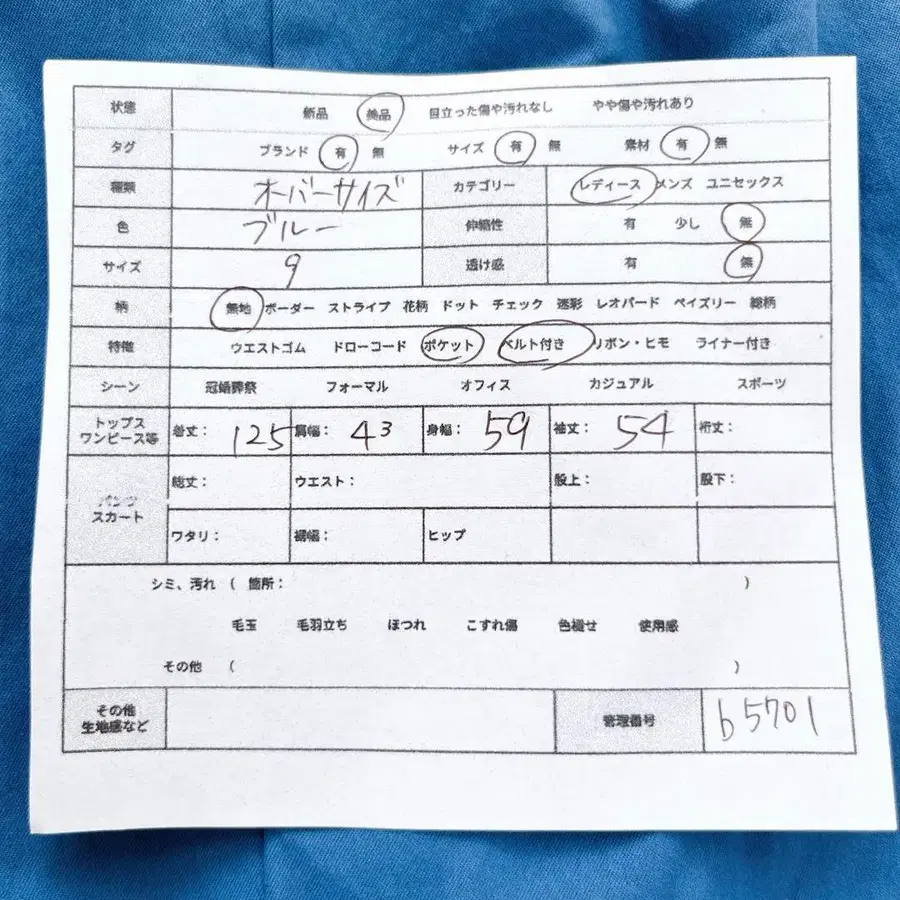 状態 新品 美品 目立った傷や汚れなし やや傷や汚れあり
タグ ブランド 有 無 サイズ 有 無 素材 有 無
種類 オーバーサイズ カテゴリー レディース メンズ ユニセックス
色 ブルー 伸縮性 有 少し 無
サイズ 9 透け感 有 無
柄 無地 ボーダー ストライプ 花柄 ドット チェック 迷彩 レオパード ペイズリー 総柄
特徴 ウエストゴム ドローコード ポケット ベルト付き リボン・ヒモ ライナー付き
シーン 冠婚葬祭 フォーマル オフィス カジュアル スポーツ
トップス
ワンピース等 着丈: 125 肩幅: 43 身幅: 59 袖丈: 54 裄丈:
パンツ
スカート 総丈: ウエスト: 股上: 股下:
ワタリ: 裾幅: ヒップ
シミ、汚れ ( 箇所: )
毛玉 毛羽立ち ほつれ こすれ傷 色褪せ 使用感
その他 ( )
その他
生地感など 管理番号 b5701